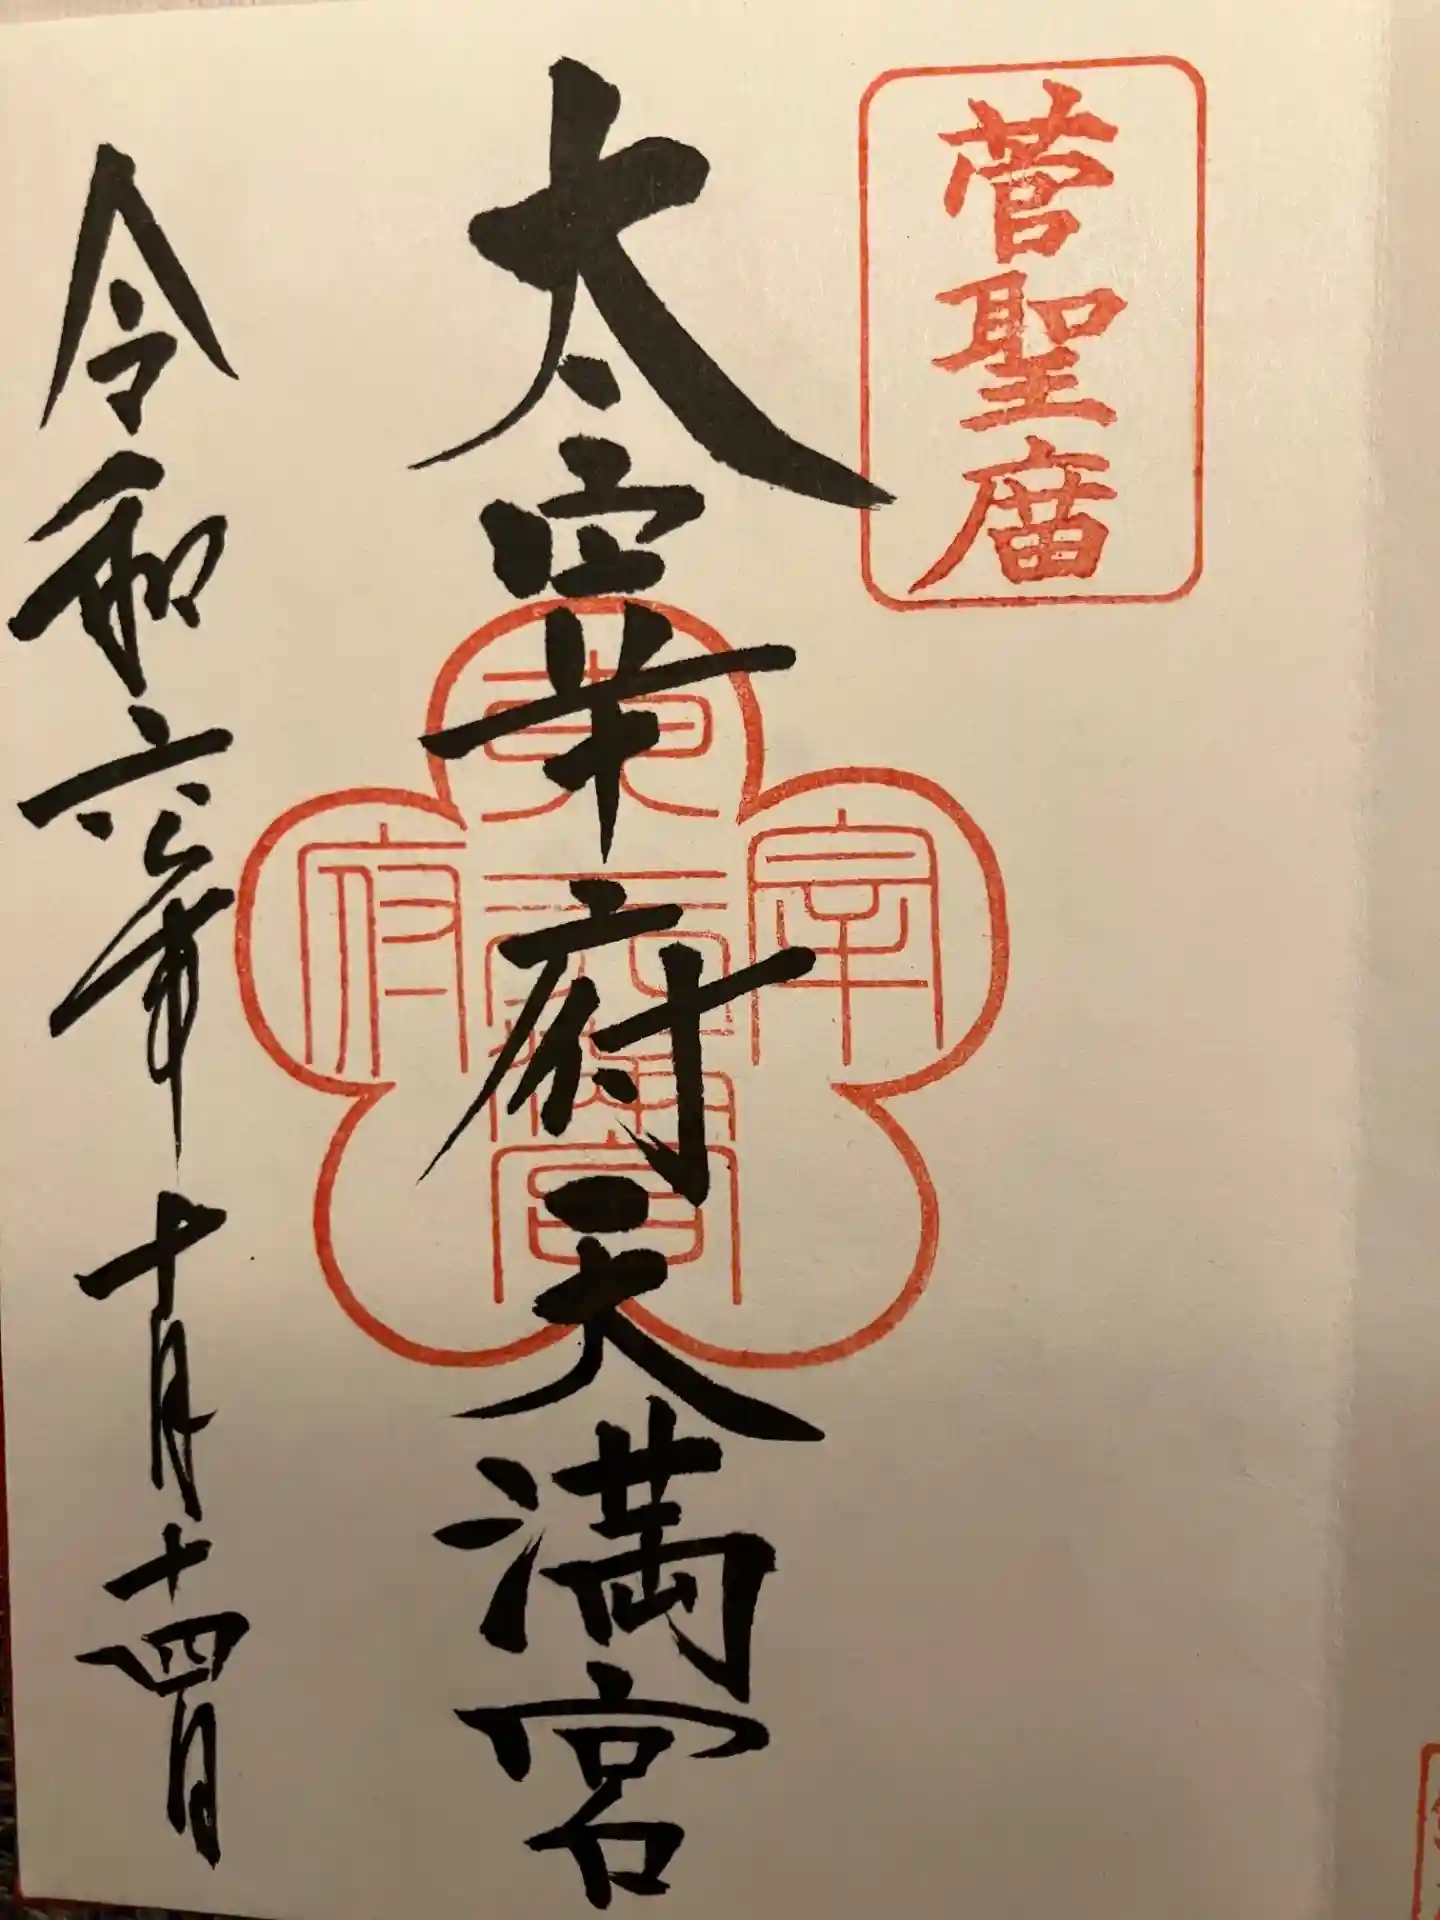 菅聖庿
太宰府天満宮
宰
府
天満宮
令和六年十月十四日